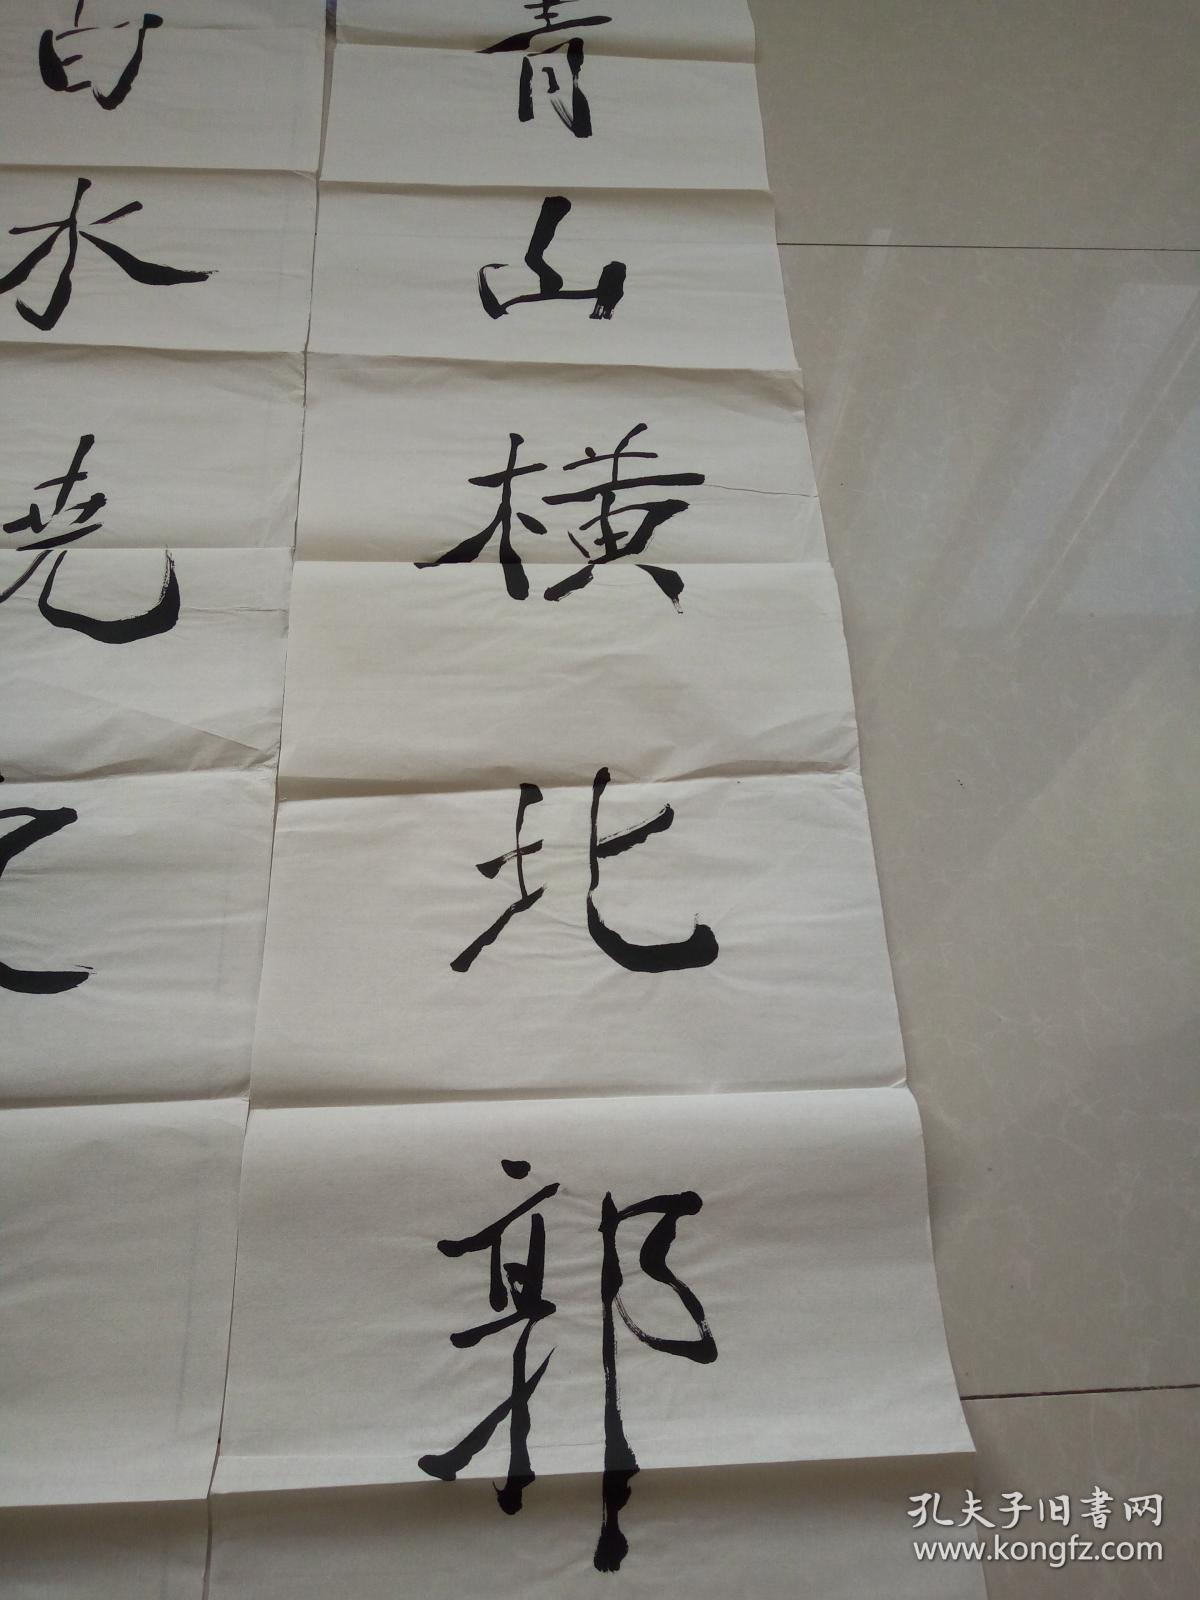 青山横北郭
白水
孔夫子旧書网
www.kongfz.com